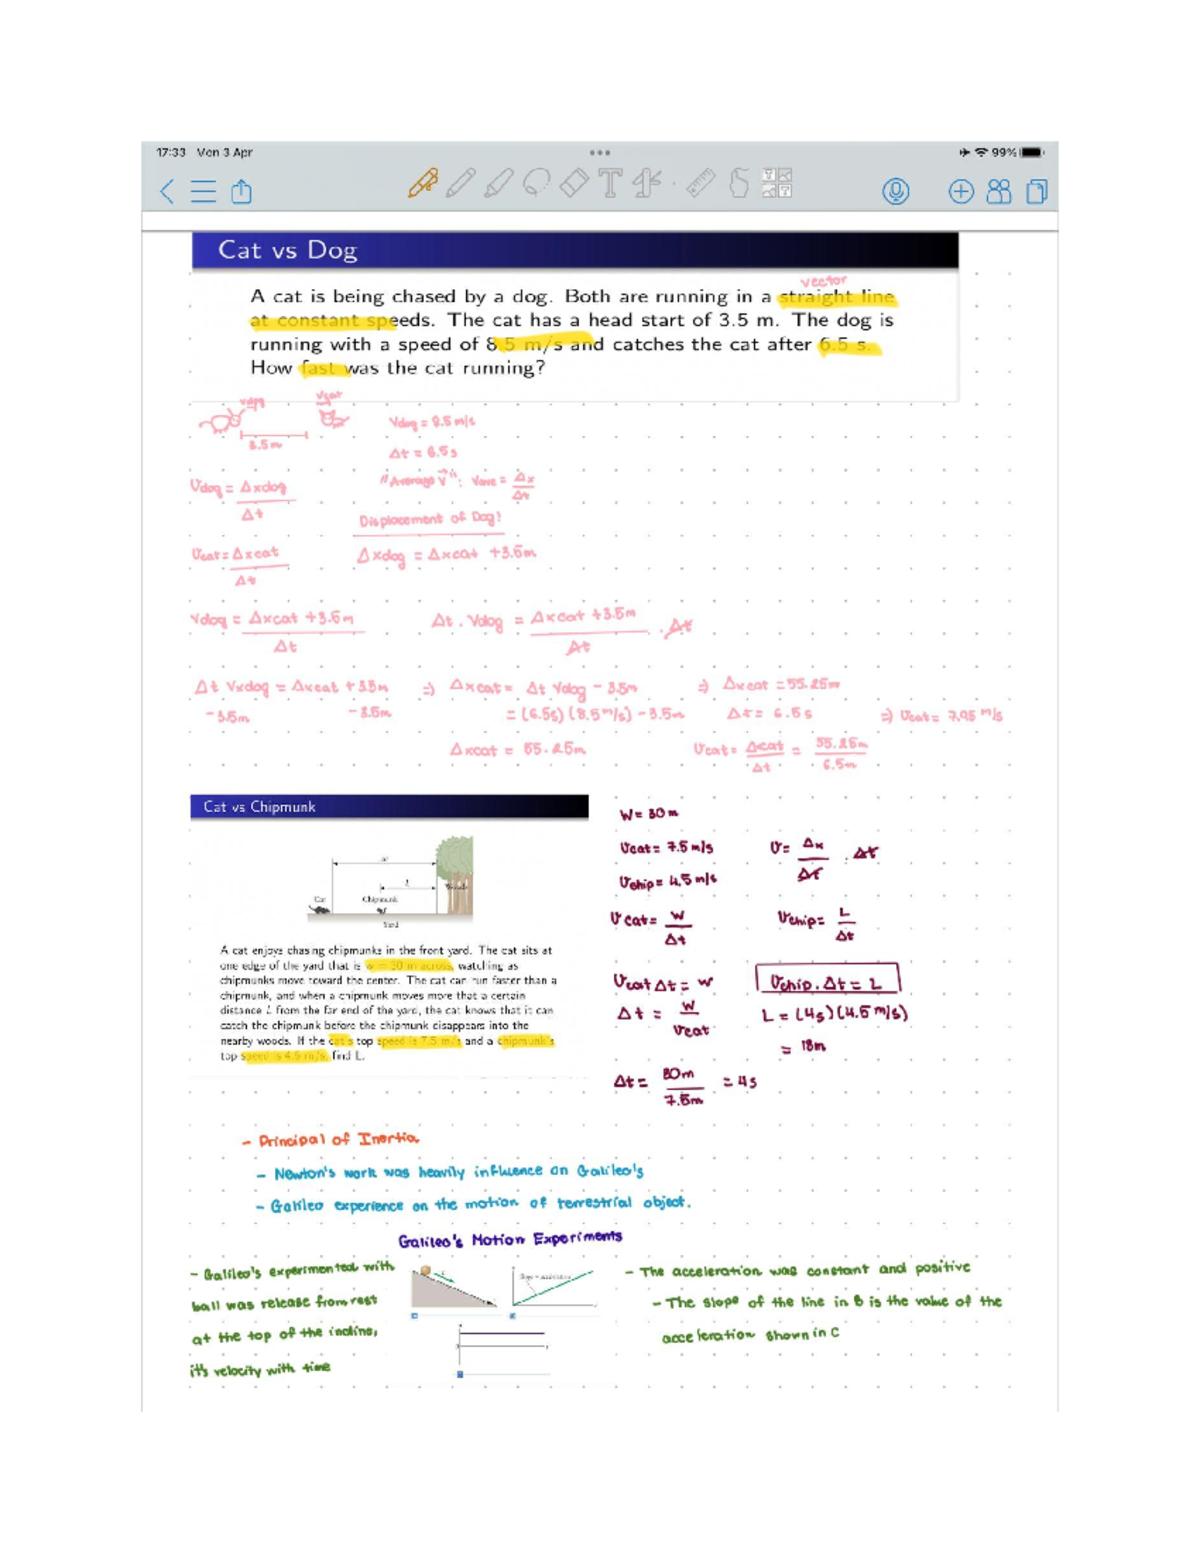 17:33 Mon 3 Apr
99%
Cat vs Dog
vector
A cat is being chased by a dog. Both are running in a straight line
at constant speeds. The cat has a head start of 3.5 m. The dog is
running with a speed of 8.5 m/s and catches the cat after 6.5 s.
How fast was the cat running?
Vdog Vcat
3.5m
Vdog = 8.5 m/s
Δt = 6.5s
"Average V": Vave = Δx/Δt
Vdog = Δxdog/Δt
Displacement of Dog!
Vcat = Δxcat/Δt
Δxdog = Δxcat + 3.5m
Vdog = Δxcat + 3.5m/Δt
Δt . Vdog = Δxcat + 3.5m/Δt . Δt
Δt Vxdog = Δxcat + 3.5m
-3.5m -3.5m
=) Δxcat = Δt Vdog - 3.5m
= (6.5s) (8.5 m/s) - 3.5m
Δxcat = 55.25m
=) Δxcat = 55.25m
Δt = 6.5s
Vcat = Δcat/Δt = 55.25m/6.5m
=) Vcat = 7.95 m/s
Cat vs Chipmunk
w
L
Woods
Cat
Chipmunk
Yard
A cat enjoys chasing chipmunks in the front yard. The cat sits at
one edge of the yard that is w = 30 m across, watching as
chipmunks move toward the center. The cat can run faster than a
chipmunk, and when a chipmunk moves more that a certain
distance L from the far end of the yard, the cat knows that it can
catch the chipmunk before the chipmunk disappears into the
nearby woods. If the cat's top speed is 7.5 m/s and a chipmunk's
top speed is 4.5 m/s, find L.
W = 30m
Vcat = 7.5 m/s
Vchip = 4.5 m/s
V = Δx/Δt . Δt
Vcat = W/Δt
Vchip = L/Δt
Vcat Δt = W
Δt = W/Vcat
Δt = 30m/7.5m = 4s
Vchip . Δt = L
L = (4s)(4.5 m/s)
= 18m
- Principal of Inertia
- Newton's work was heavily influence on Galileo's
- Galileo experience on the motion of terrestrial object.
Galileo's Motion Experiments
- Galileo's experimented with
ball was release from rest
at the top of the incline,
it's velocity with time
Slope = acceleration
- The acceleration was constant and positive
- The slope of the line in B is the value of the
acceleration shown in C